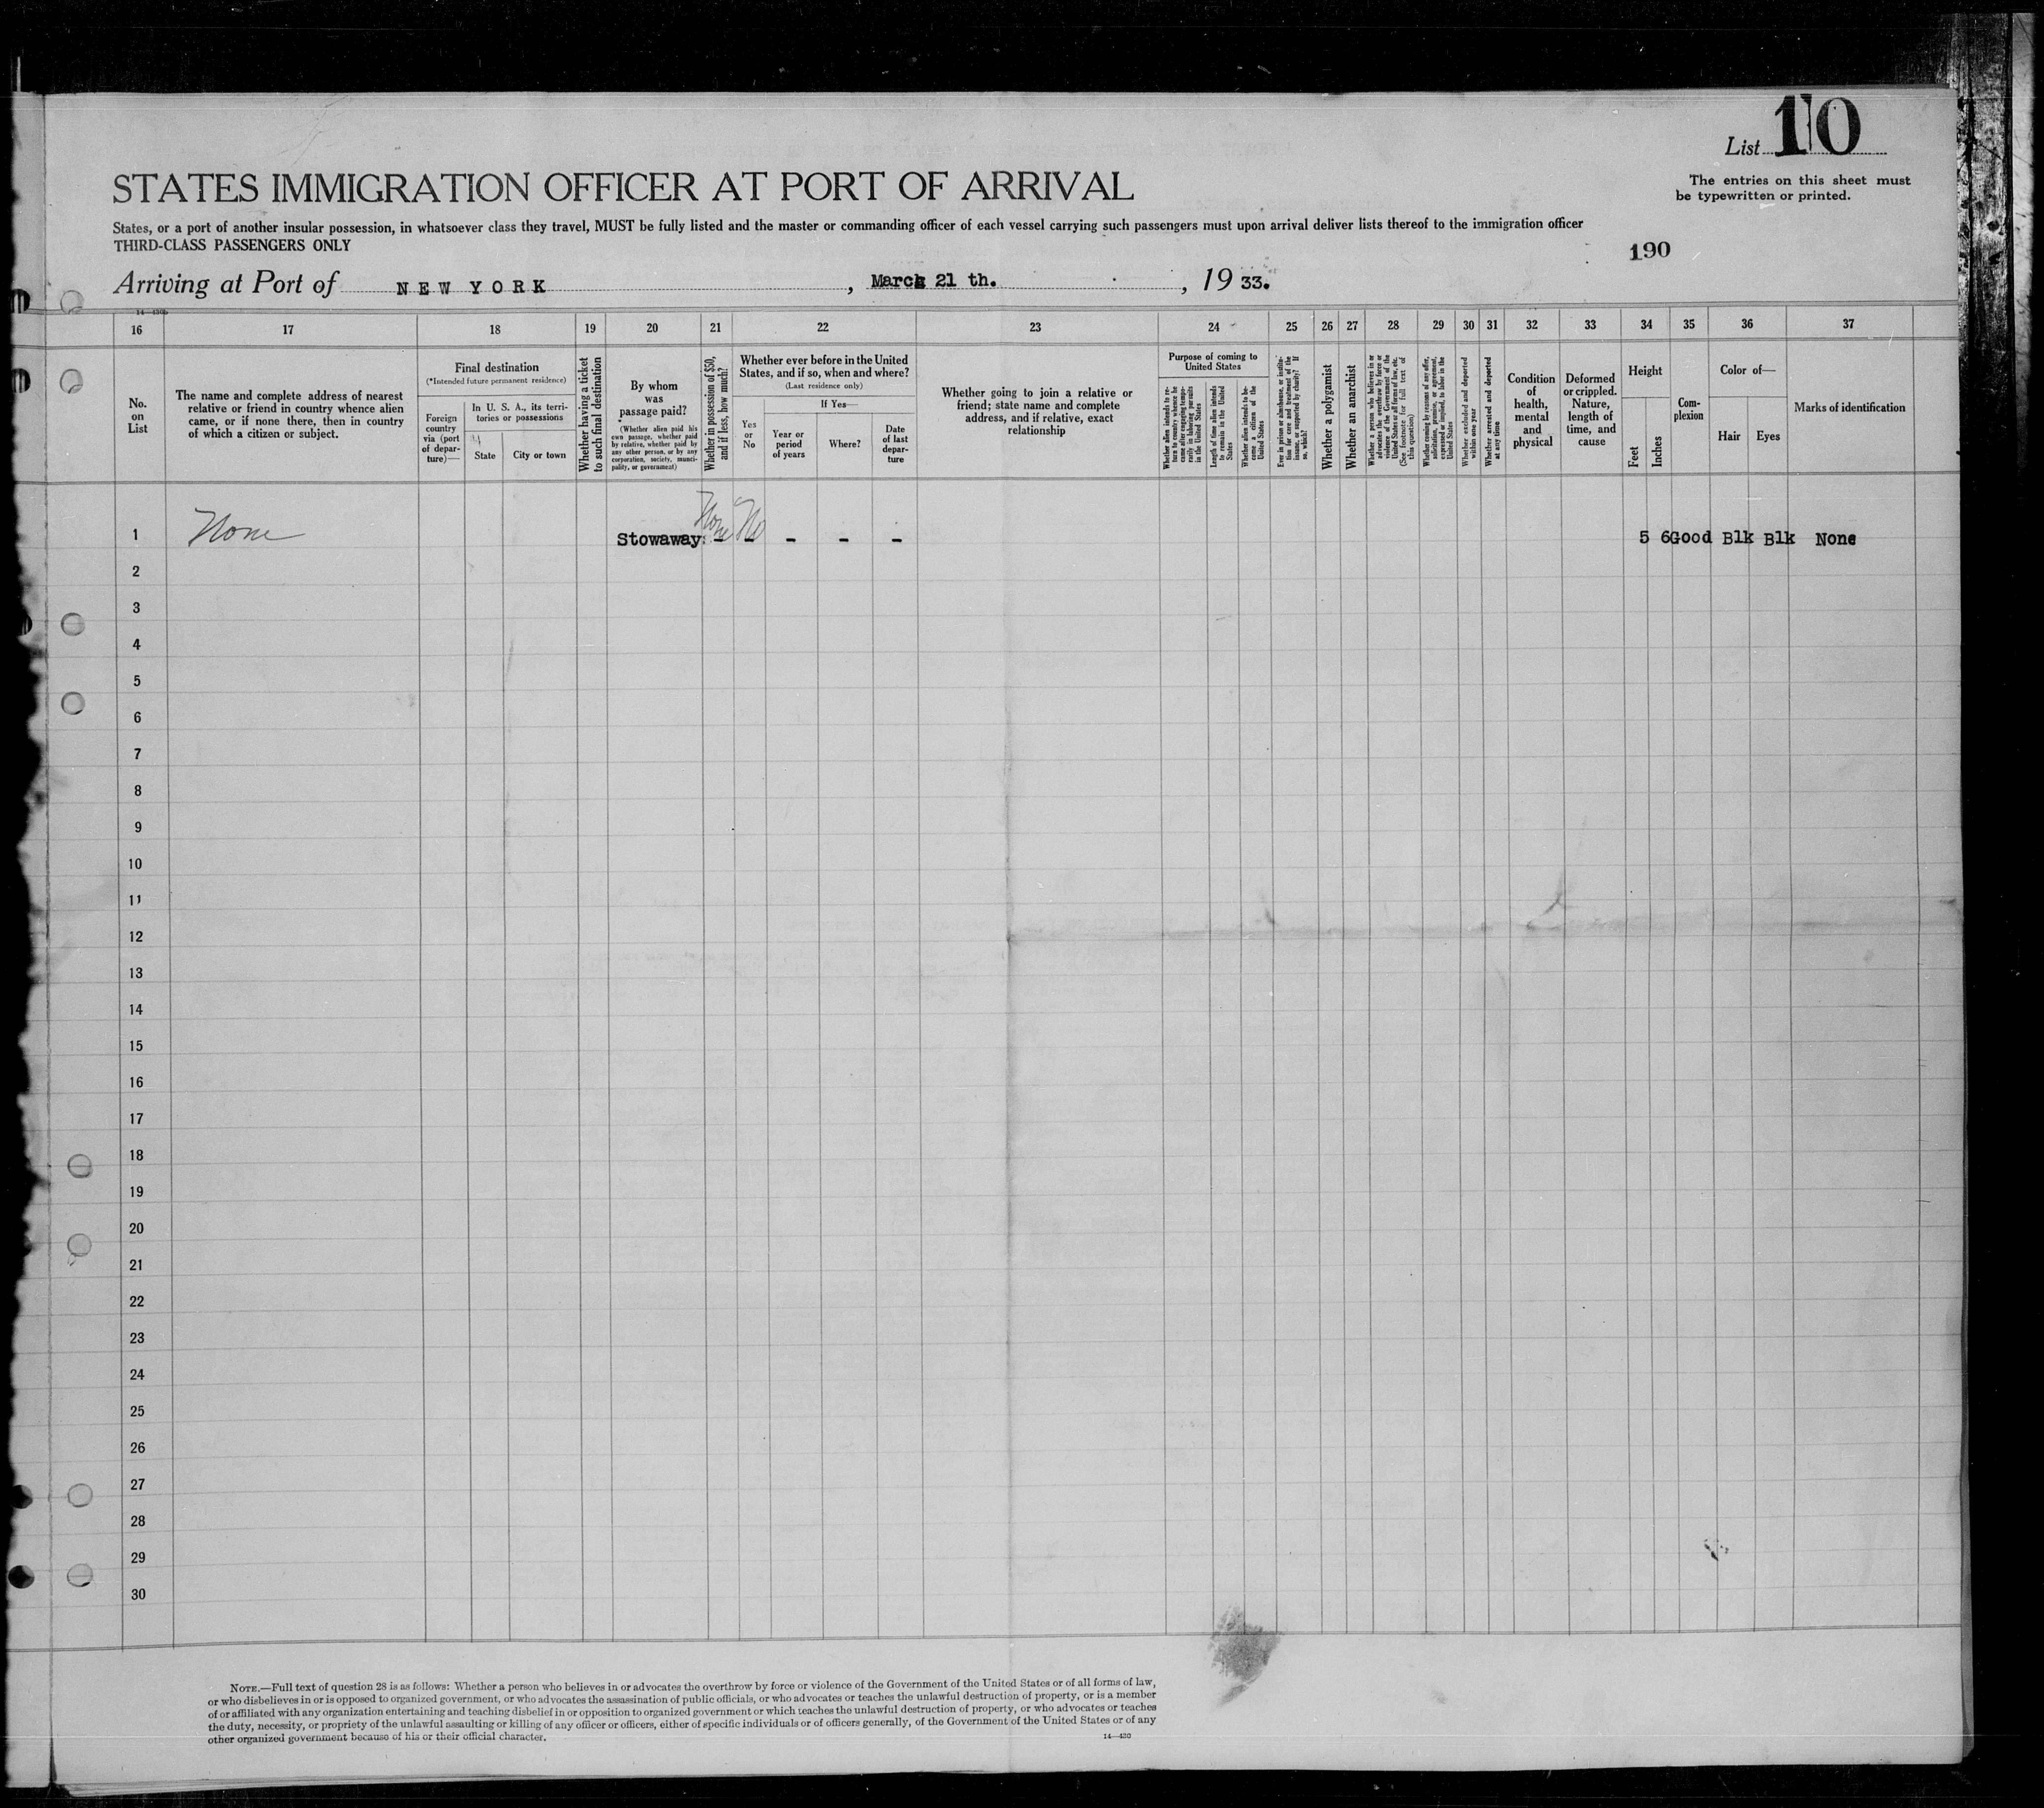 List 10
The entries on this sheet must
be typewritten or printed.
STATES IMMIGRATION OFFICER AT PORT OF ARRIVAL
States, or a port of another insular possession, in whatsoever class they travel, MUST be fully listed and the master or commanding officer of each vessel carrying such passengers must upon arrival deliver lists thereof to the immigration officer
THIRD-CLASS PASSENGERS ONLY
190
Arriving at Port of NEW YORK, March 21 th., 1933.
14—430b
16 17 18 19 20 21 22 23 24 25 26 27 28 29 30 31 32 33 34 35 36 37
No.
on
List
The name and complete address of nearest
relative or friend in country whence alien
came, or if none there, then in country
of which a citizen or subject.
Final destination
(*Intended future permanent residence)
Foreign
country
via (port
of depar-
ture)—
In U. S. A., its terri-
tories or possessions
State
City or town
Whether having a ticket
to such final destination
By whom
was
passage paid?
(Whether alien paid his
own passage, whether paid
by relative, whether paid by
any other person, or by any
corporation, society, munici-
pality, or government)
Whether in possession of $50,
and if less, how much?
Whether ever before in the United
States, and if so, when and where?
(Last residence only)
Yes
or
No
If Yes—
Year or
period
of years
Where?
Date
of last
depar-
ture
Whether going to join a relative or
friend; state name and complete
address, and if relative, exact
relationship
Purpose of coming to
United States
Whether alien intends to re-
turn to country whence he
came after engaging tempo-
rarily in laboring pursuits
in the United States
Length of time alien intends
to remain in the United
States
Whether alien intends to be-
come a citizen of the
United States
Ever in prison or almshouse, or institu-
tion for care and treatment of the
insane, or supported by charity? If
so, which?
Whether a polygamist
Whether an anarchist
Whether a person who believes in or
advocates the overthrow by force or
violence of the Government of the
United States or all forms of law, etc.
(See footnote for full text of
this question)
Whether coming by reasons of any offer,
solicitation, promise, or agreement,
expressed or implied, to labor in the
United States
Whether excluded and deported
within one year
Whether arrested and deported
at any time
Condition
of
health,
mental
and
physical
Deformed
or crippled.
Nature,
length of
time, and
cause
Height
Feet
Inches
Com-
plexion
Color of—
Hair
Eyes
Marks of identification
1 None Stowaway: None No - - - - - 5 6 Good Blk Blk None
2
3
4
5
6
7
8
9
10
11
12
13
14
15
16
17
18
19
20
21
22
23
24
25
26
27
28
29
30
NOTE.—Full text of question 28 is as follows: Whether a person who believes in or advocates the overthrow by force or violence of the Government of the United States or of all forms of law,
or who disbelieves in or is opposed to organized government, or who advocates the assassination of public officials, or who advocates or teaches the unlawful destruction of property, or is a member
of or affiliated with any organization entertaining and teaching disbelief in or opposition to organized government or which teaches the unlawful destruction of property, or who advocates or teaches
the duty, necessity, or propriety of the unlawful assaulting or killing of any officer or officers, either of specific individuals or of officers generally, of the Government of the United States or of any
other organized government because of his or their official character.
14—430